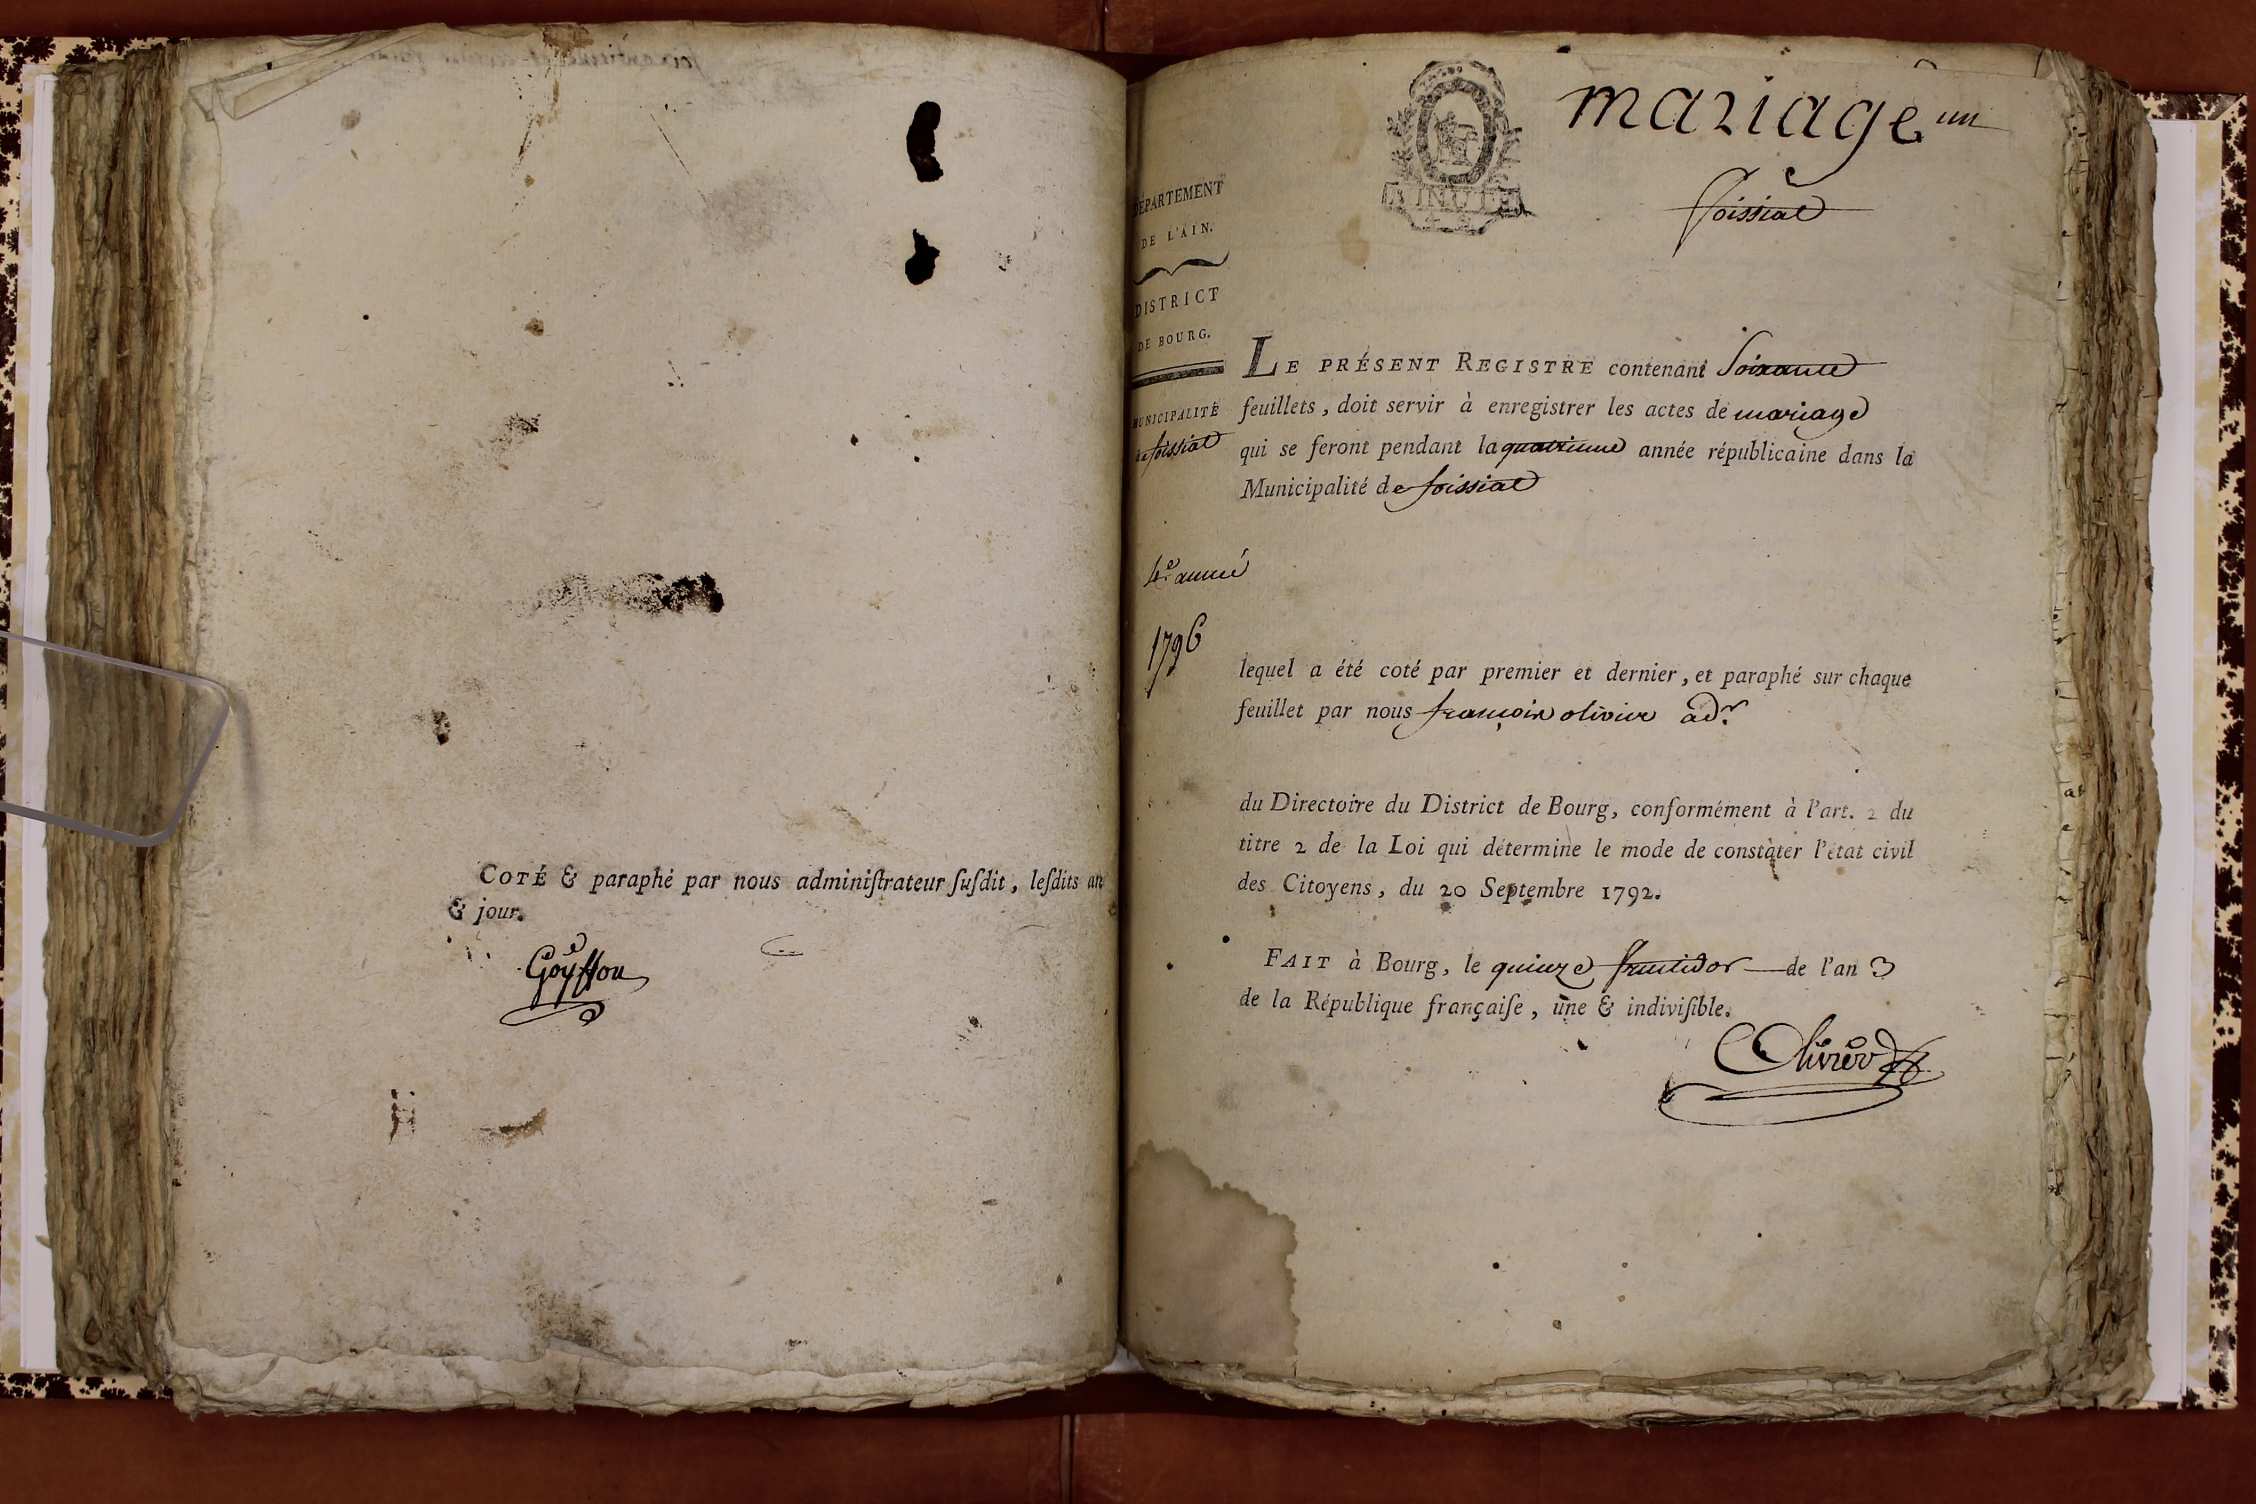 COTÉ & paraphé par nous adminiſtrateur ſuſdit, leſdits an
& jour.
Goyffon
mariage un
foissiat
DÉPARTEMENT
DE L'AIN.
DISTRICT
DE BOURG.
MUNICIPALITÉ
de foissiat
LE PRÉSENT REGISTRE contenant Soixante
feuillets, doit servir à enregistrer les actes de mariage
qui se feront pendant la quatrieme année républicaine dans la
Municipalité de foissiat
4e. année
1796
lequel a été coté par premier et dernier, et paraphé sur chaque
feuillet par nous françois olivier adr.
du Directoire du District de Bourg, conformément à l'art. 2 du
titre 2 de la Loi qui détermine le mode de constater l'état civil
des Citoyens, du 20 Septembre 1792.
FAIT à Bourg, le quinze fructidor de l'an 3
de la République françaiſe, une & indiviſible.
Olivier